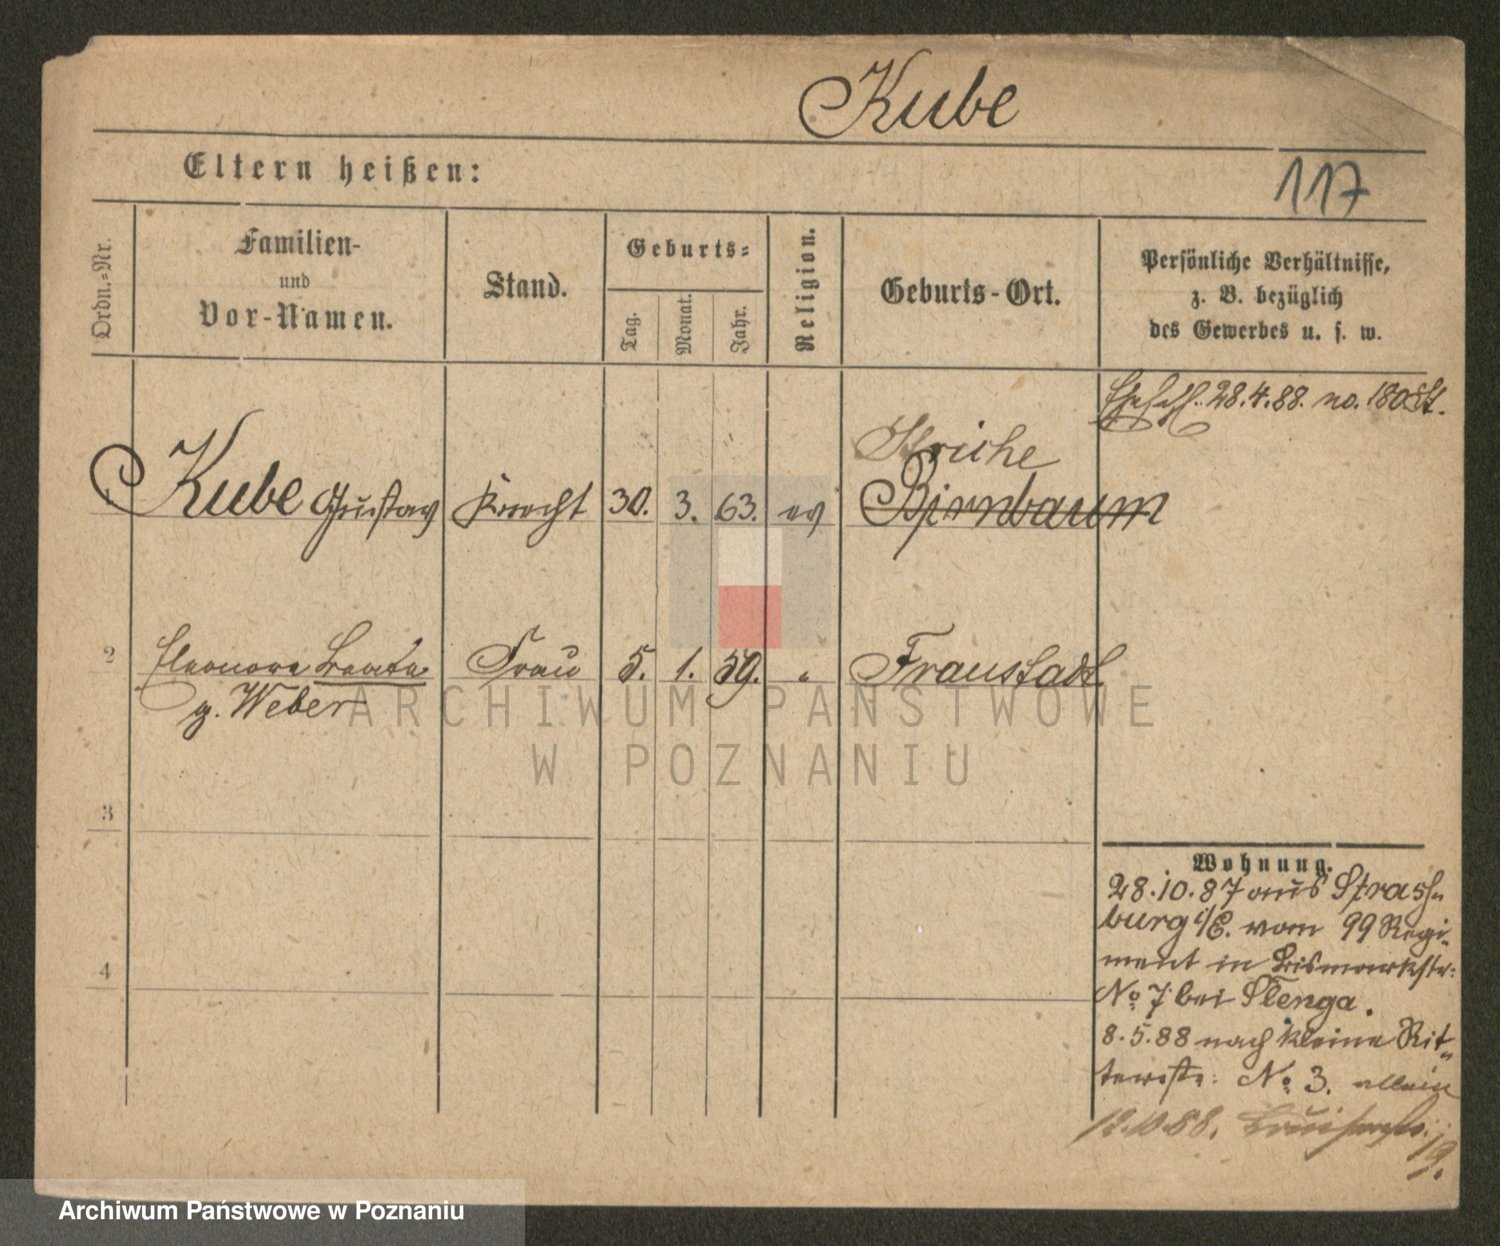 Kube
Eltern heißen:
117
Ordn.-Nr.
Familien-
und
Vor-Namen.
Stand.
Geburts-
Tag.
Monat.
Jahr.
Religion.
Geburts-Ort.
Persönliche Verhältnisse,
z. B. bezüglich
des Gewerbes u. s. w.
28.4.88. no. 180 St.
Striche
1 Kube Gustav Knecht 30. 3. 63. ev Birnbaum
2 Eleonore Beate Frau 5. 1. 59. " Fraustadt
g. Weber
ARCHIWUM PAŃSTWOWE
W POZNANIU
3
Wohnung.
28.10.87 aus Strass-
burg i/E. vom 99 Regi-
4
ment in Bismarkstr:
No 7 bei Stenga.
8.5.88 nach kleine Rit-
terstr: No 3. allein
12.10.88.
19.
Archiwum Państwowe w Poznaniu